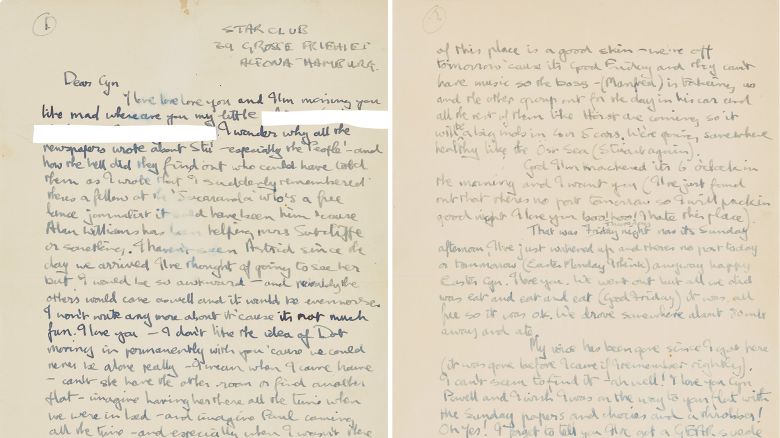 1
STAR CLUB
39 GROSSE FREIHEIT
ALTONA HAMBURG.
Dear Cyn
I love love love you and I'm missing you
like mad where are you my little
I wonder why all the
newspapers wrote about Stu - especially the 'People' - and
how the hell did they find out who could have told
them as I wrote that I suddenly remembered
theres a fellow at the Jacaranda who's a free
lance journalist it could have been him 'cause
Alan Williams has been helping Mrs Sutcliffe
or something. I haven't seen Astrid since the
day we arrived I've thought of going to see her
but I would be so awkward - and probably the
others would come as well and it would be even worse.
I won't write any more about it 'cause its not much
fun. I love you - I don't like the idea of Dot
moving in permanently with you 'cause we could
never be alone really - I mean when I come home
- can't she have the other room or find another
flat - imagine having her there all the time when
we were in bed - and imagine Paul coming
all the time - and especially when I wasn't there
2
of this place is a good skin - we're off
tomorrow 'cause its Good Friday and they can't
have music so the boss - (Manfred) is taking us
and the other group out for the day in his car and
all the rest of them like Horst are coming, so it
will be a big mob in 4 or 5 cars. We're going somewhere
healthy like the Ost Sea (Stuck again).
God I'm knackered its 6 o'clock in
the morning and I want you (I've just found
out that theres no post tomorrow so I will pack in
good night I love you boo! hoo! I hate this place).
That was Friday night now its Sunday
afternoon. I've just woken up and theres no post today
or tomorrow (Easter Monday I think) anyway happy
Easter Cyn. I love you. We went out but all we did
was eat and eat and eat (Good Friday) it was all
free so it was ok. We drove somewhere about 30 mls
away and ate.
My voice has been gone since I got here
(it was gone before I came if I remember rightly).
I can't seem to find it - ah well! I love you Cyn
Powell and I wish I was on the way to your flat with
the Sunday papers and chocies and a throbber!
Oh Yes! I forgot to tell you I've got a GEAR suede